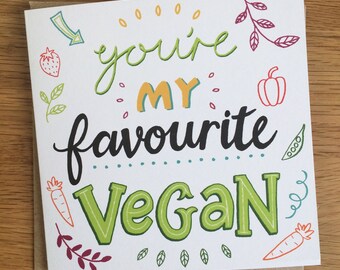 you're
MY
favourite
VEGAN